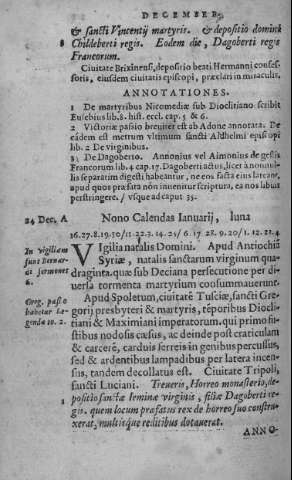 DECEMBER.
& sancti Vincentij martyris. & depositio domini
8 Childeberti regis. Eodem die, Dagoberti regis
Francorum.
Ciuitate Brixinensi, depositio beati Hermanni confes-
soris, eiusdem ciuitatis episcopi, præclari in miraculis.
ANNOTATIONES.
1 De martyribus Nicomediæ sub Diocletiano scribit
Eusebius lib. 8. hist. eccl. cap. 5 & 6.
2 Victoriæ passio breuiter est ab Adone annotata. De
eadem est metrum vltimum sancti Aldhelmi episcopi
lib. 2 De virginibus.
3 De Dagoberto. Annonius vel Aimonius de gestis
Francorum lib. 4 cap. 17. Dagoberti actus, licet à nonnul-
lis separatim digesti habeantur, ne eos facta eius lateant,
apud quos præfata nõn inuenitur scriptura, ea nos libuit
perstringere. / vsque ad caput 35.
24 Dec. A Nono Calendas Ianuarij, luna
16.27.8.19.30/11.22.3.14.25/6.17.28.9.20/1.12.23.4
In vigiliam
sunt Bernar-
di sermones
6.
Vigilia natalis Domini. Apud Antiochiã
Syriæ, natalis sanctarum virginum qua-
draginta, quæ sub Deciana persecutione per di-
uersa tormenta martyrium consummauerunt.
Greg. passio
habetur Le-
genda to. 2.
Apud Spoletum, ciuitatẽ Tusciæ, sancti Gre-
gorij presbyteri & martyris, tẽporibus Diocle-
tiani & Maximiani imperatorum. qui primo fu-
stibus nodosis cæsus, ac deinde post craticulam
& carcerẽ, carduis ferreis in genibus percussus,
sed & ardentibus lampadibus per latera incen-
sus, tandem decollatus est. Ciuitate Tripoli,
sancti Luciani. Treueris, Horreo monasterio, de-
1 positio sanctæ Irminæ virginis, filiæ Dagoberti re-
gis. quem locum præfatus rex de horreo suo constru-
xerat, multisque reditibus dotauerat.
ANNO-